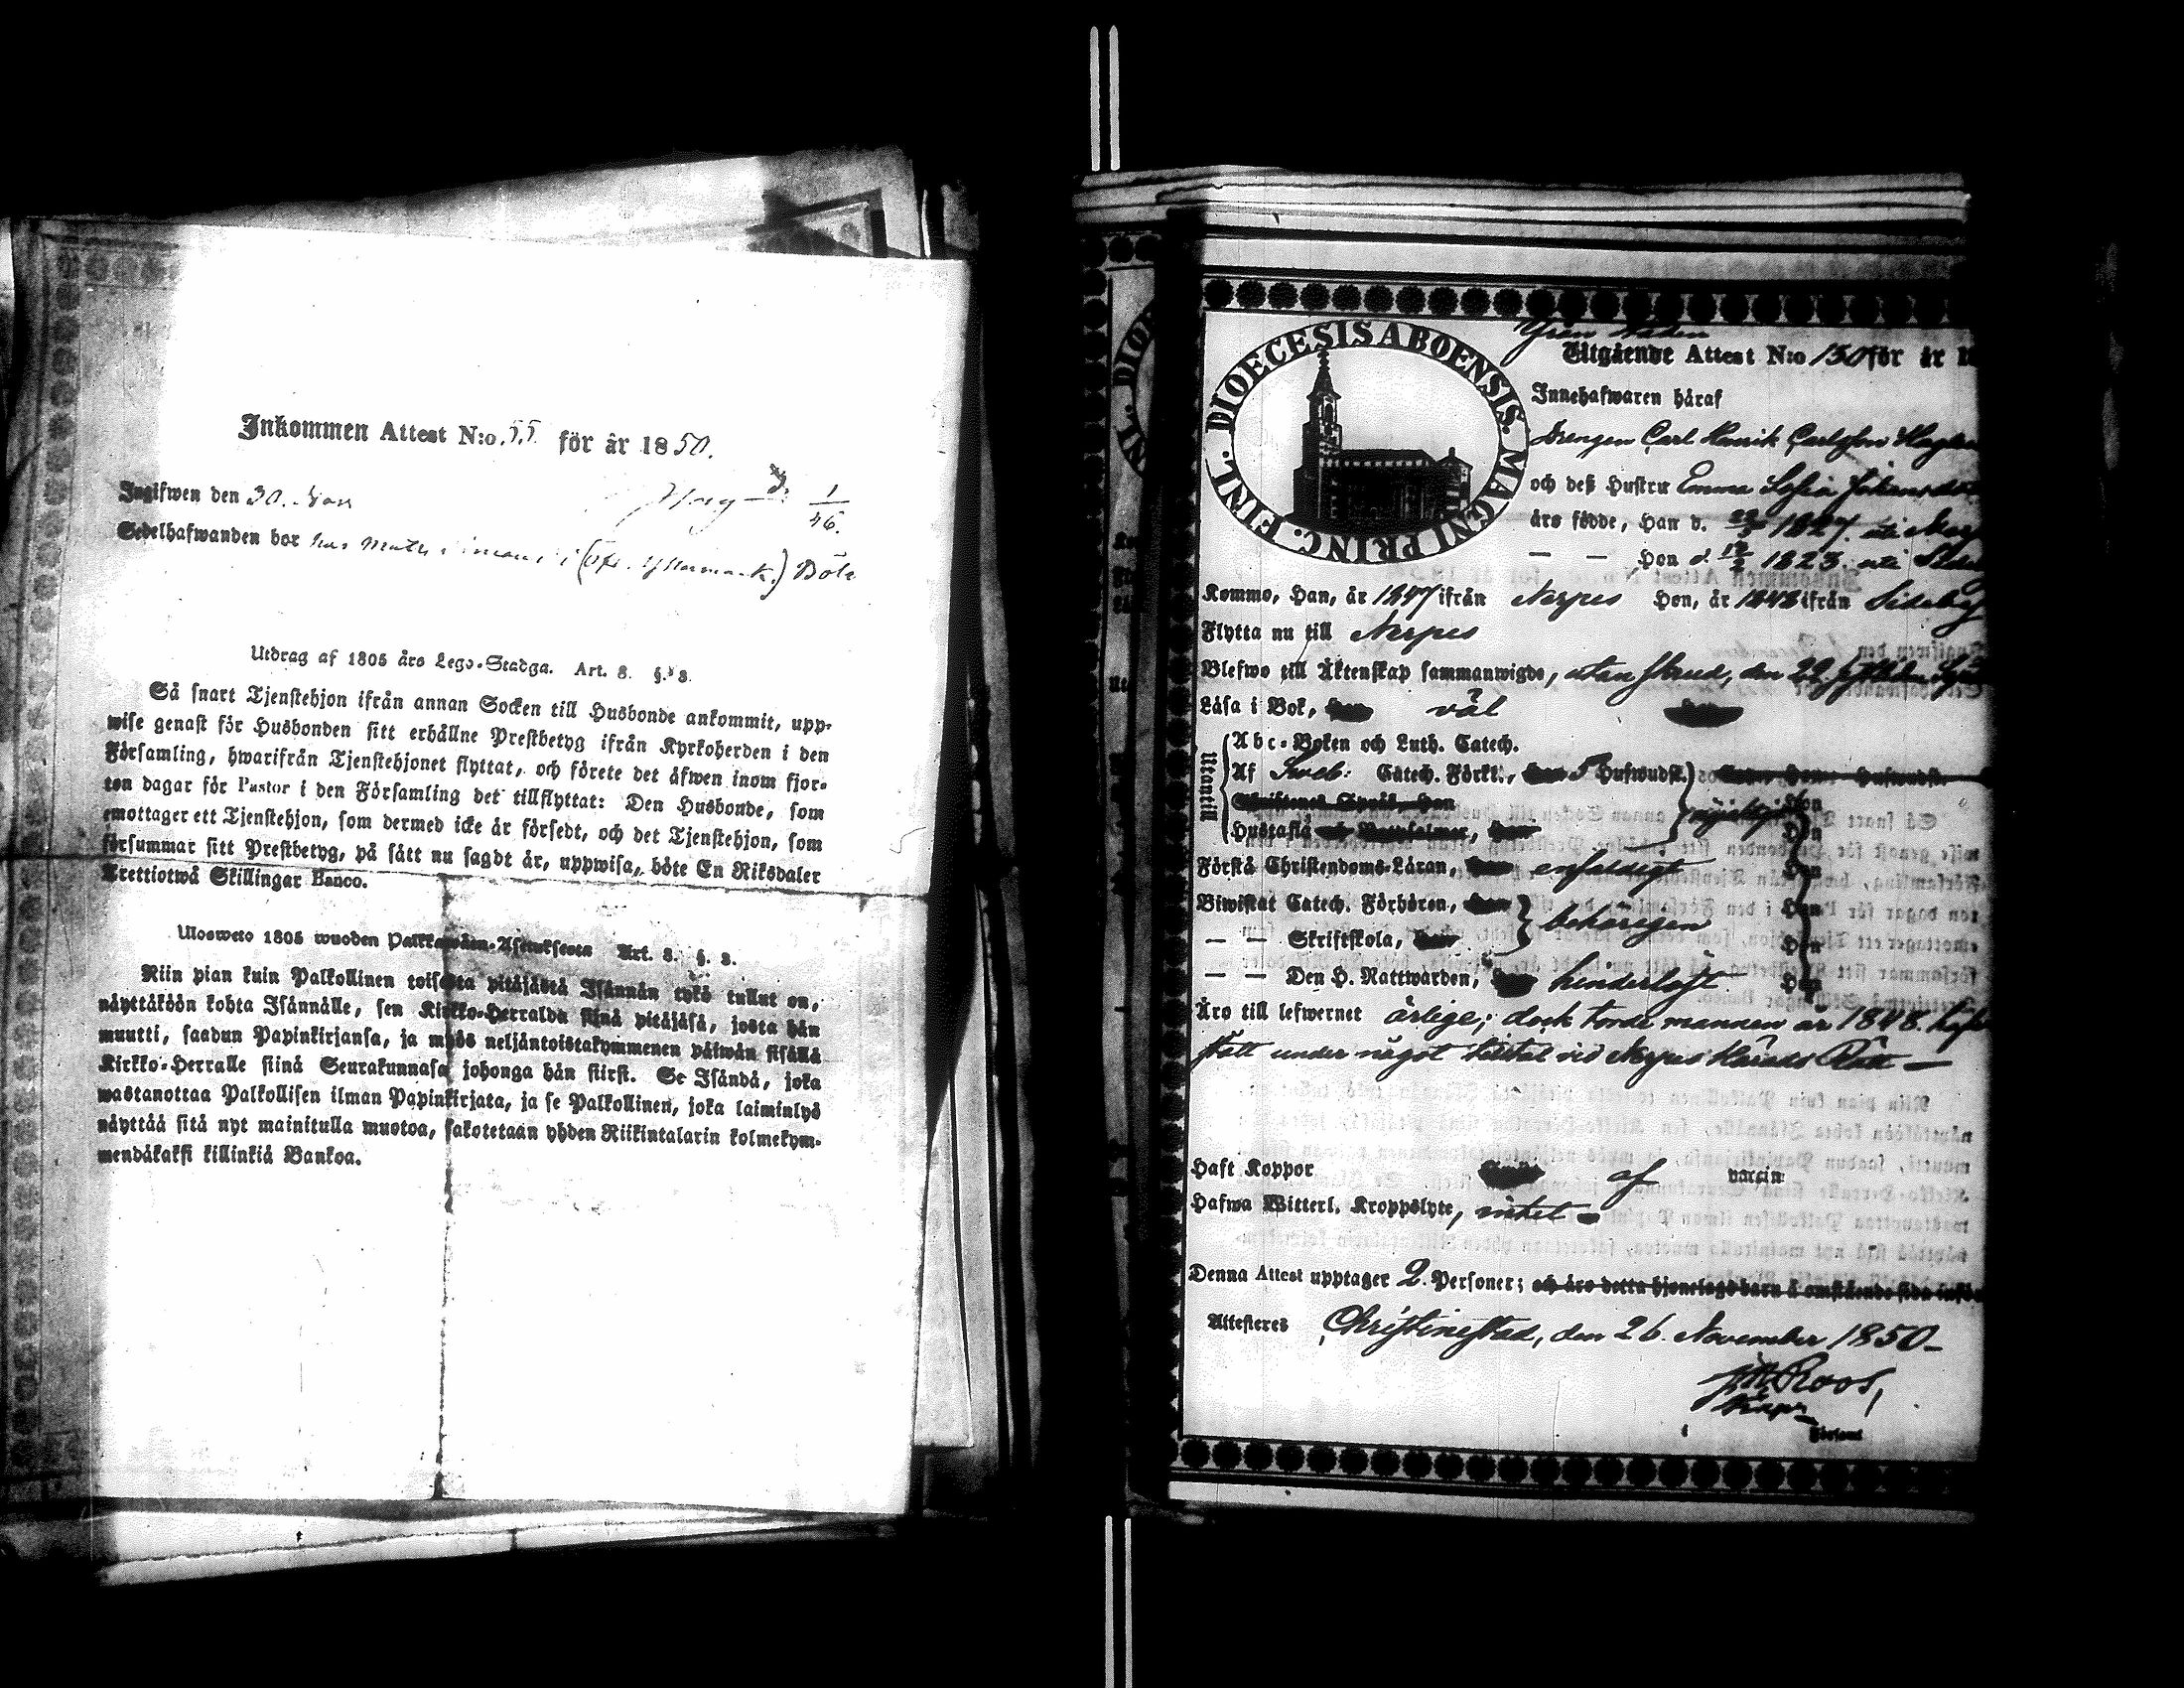 Inkommen Attest N:o 55 för år 1850.
Ingifwen den 30. Nov
1
46.
Sedelhafwanden bor hos Matts i (Öfr. Yttermark.) Böle
Utdrag af 1805 års Lego-Stadga. Art. 8. §. 3.
Så snart Tjenstehjon ifrån annan Socken till Husbonde ankommit, upp-
wise genast för Husbonden sitt erhållne Prestbetyg ifrån Kyrkoherden i den
Församling, hwarifrån Tjenstehjonet flyttat, och förete det äfwen inom fjor-
ton dagar för Pastor i den Församling det tillflyttat: Den Husbonde, som
emottager ett Tjenstehjon, som dermed icke är försedt, och det Tjenstehjon, som
försummar sitt Prestbetyg, på sätt nu sagdt är, uppwisa, böte En Riksdaler
Trettiotwå Skillingar Banco.
Ulosweto 1805 wuoden Palkkawäen-Asetuksesta Art. 8. §. 3.
Niin pian kuin Palkollinen toisesta pitäjästä Isännän tykö tullut on,
näyttäköön kohta Isännälle, sen Kirkko-Herralda siinä pitäjäsä, josta hän
muutti, saadun Papinkirjansa, ja myös neljäntoistakymmenen päiwän sisällä
Kirkko-Herralle siinä Seurakunnasa johonga hän siirst. Se Isändä, joka
wastanottaa Palkollisen ilman Papinkirjata, ja se Palkollinen, joka laiminlyö
näyttää sitä nyt mainitulla muotoa, sakotetaan yhden Riikintalarin kolmekym-
mendäkaksi killinkiä Bankoa.
DIOECESIS ABOENSIS. MAGNI PRINC. FINL.
Utgående Attest N:o 130 för år 1
Innehafwaren häraf
Drengen Carl Henrik Carlsson
och deß Hustru Emma Sofia
äro födde, Han d. 1827. uti
— — Hon d. 12/2 1823. uti
Kommo, Han, år 1847 ifrån Nerpes Hon, år 1848 ifrån Sideby
Flytta nu till Nerpes
Blefwo till Äktenskap sammanwigde, utan skrud, den 22.
Läsa i Bok, väl
Utantill
Abc-Boken och Luth. Catech.
Af Sveb: Catech. Förkl., 5 Hufwudst.
Hustafla
Förstå Christendoms-Läran, enfaldigt
Biwistat Catech. Förhören, behörigen
— — Skriftskola,
— — Den H. Nattwarden, hinderlöst.
Äro till lefwernet ärlige; dock torde mannen år 1848
stått under något tilltal vid Nerpes Härads Rätt —
Haft Koppor af vaccin
Hafwa Witterl. Kroppslyte, intet
Denna Attest upptager 2. Personer; och äro detta hjonelags barn å omstående sida
Attesteres Christinestad, den 26. November 1850 —
Roos,
Församl